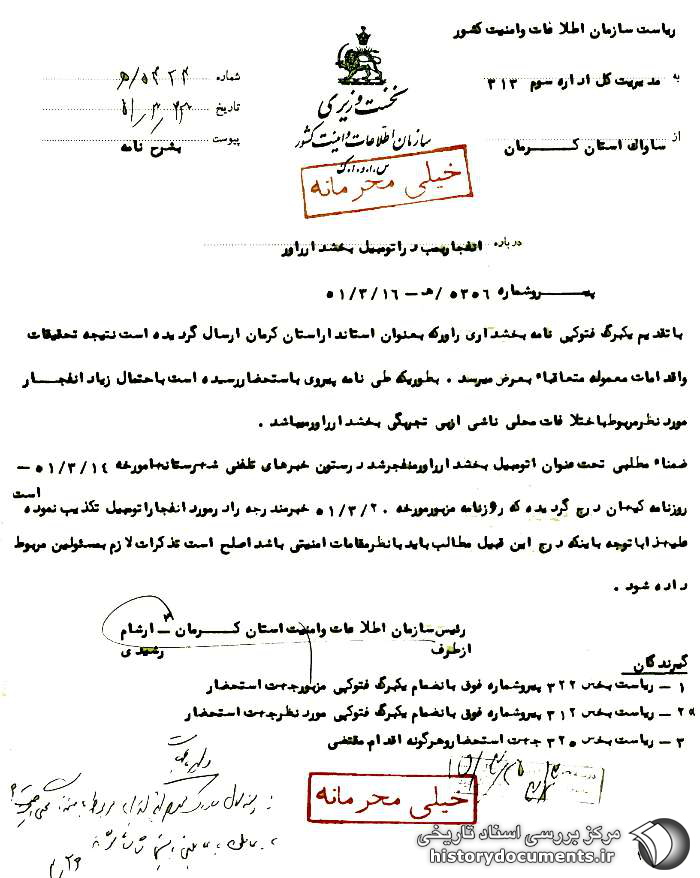 ریاست سازمان اطلاعات وامنیت کشور
به مدیریت کل اداره سوم ۳۱۳
از ساواک استان کــرمان
نخست وزیری
سازمان اطلاعات و امنیت کشور
س.ا.و.ا.ک
شماره ۵۴۲۴/ه
تاریخ
پیوست بشرح نامه
خیلی محرمانه
درباره انفجار بمب در اتومبیل بخشدار راور
پیــرو شماره ۵۳۵۶/هـ - ۵۱/۳/۱۶
با تقدیم یکبرگ فتوکپی نامه بخشداری راور که بعنوان استاندار استان کرمان ارسال گردیده است نتیجه تحقیقات
واقدامات معموله متعاقباً بعرض میرسد . بطوریکه طی نامه پیروی باستحضار رسیده است باحتمال زیاد انفجــار
مورد نظر مربوط باختلافات محلی ناشی از بی تجربگی بخشدار راور میباشد .
ضمناً مطلبی تحت عنوان اتومبیل بخشدار راور منفجر شد در ستون خبرهای تلفنی شهرستانها مورخه ۵۱/۳/۱۴ –
روزنامه کیهان درج گردیده که روزنامه مزبور مورخه ۵۱/۳/۲۰ خبر مندرجه را در مورد انفجار اتومبیل تکذیب نموده است
علیهذا با توجه باینکه درج این قبیل مطالب باید با نظر مقامات امنیتی باشد اصلح است تذکرات لازم بمسئولین مربوط
داده شود .
رئیس سازمان اطلاعات وامنیت استان کــرمان – ارشام
ازطرف رشیدی
گیرندگان
۱ – ریاست بخش ۳۲۲ پیرو شماره فوق بانضمام یکبرگ فتوکپی مزبور جهت استحضار
۲ – ریاست بخش ۳۱۲ پیرو شماره فوق بانضمام یکبرگ فتوکپی مورد نظر جهت استحضار
۳ – ریاست بخش ۳۲۵ جهت استحضار و هرگونه اقدام مقتضی
خیلی محرمانه
مرکز بررسی اسناد تاریخی
historydocuments.ir